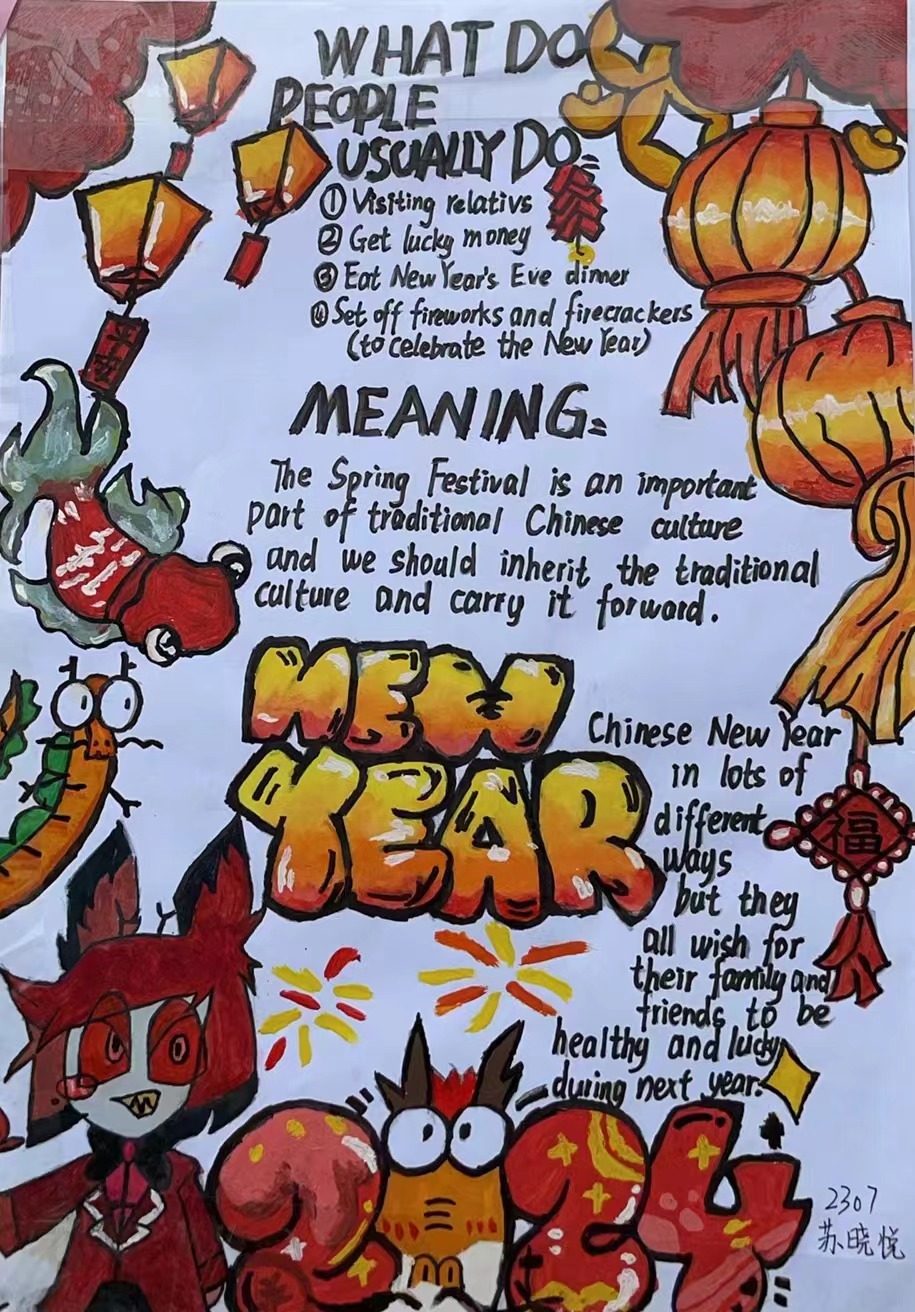 WHAT DO
PEOPLE
USUALLY DO
① Visiting relativs
② Get lucky money
③ Eat New Year's Eve dinner
④ Set off fireworks and firecrackers
(to celebrate the New Year)
平安
MEANING:
The Spring Festival is an important
part of traditional Chinese culture
and we should inherit the traditional
culture and carry it forward.
NEW
YEAR
Chinese New Year
in lots of
different
ways
but they
all wish for
their family and
friends to be
healthy and lucky
during next year.
福
2024
2307
苏晓悦